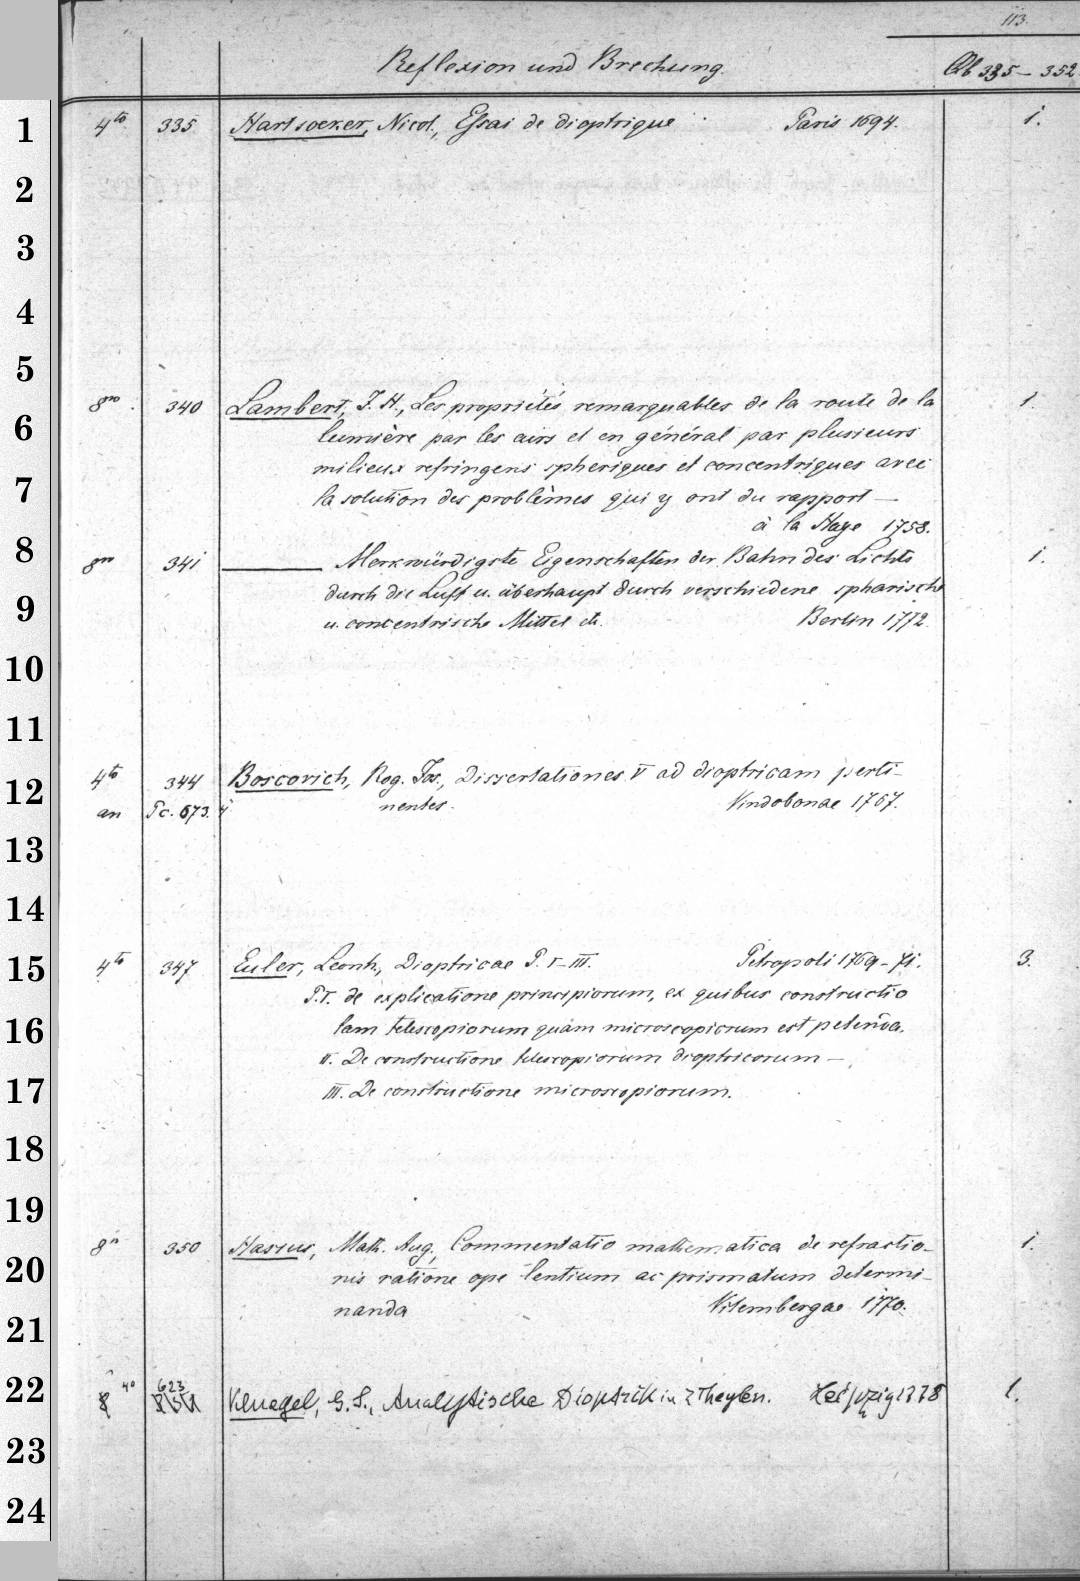 113.
Reflexion und Brechung.
Qb 335 – 352
1 4to 335 Hartsoeker, Nicol., Essai de dioptrique Paris 1694. 1.
2
3
4
5
8vo. 340 Lambert, J. H., Les propriétés remarquables de la route de la 1.
6 lumière par les airs et en général par plusieurs
milieux refringens spheriques et concentriques avec
7 la solution des problèmes qui y ont du rapport —
à la Haye 1758.
8 8vo 341 ——— Merkwürdigste Eigenschaften der Bahn des Lichts 1.
durch die Luft u. überhaupt durch verschiedene sphärische
9 u. concentrische Mittel etc. Berlin 1772.
10
11
4to 344 Boscovich, Rog. Jos., Dissertationes V ad dioptricam perti-
12 an Pc. 673. 4 nentes. Vindobonae 1767.
13
14
15 4to 347 Euler, Leonh., Dioptricae P. I–III. Petropoli 1769–71. 3.
P.I. de explicatione principiorum, ex quibus constructio
16 tam telescopiorum quam microscopiorum est petenda.
II. De constructione telescopiorum dioptricorum —
17 III. De constructione microscopiorum.
18
19
8vo 350 Hasius, Math. Aug., Commentatio mathematica de refractio- 1.
20 nis ratione ope lentium ac prismatum determi-
21 nanda Vitembergae 1770.
22 4o 623 Kluegel, G. S., Analytische Dioptrik in 2 Theylen. Leipzig 1778 1.
23
24